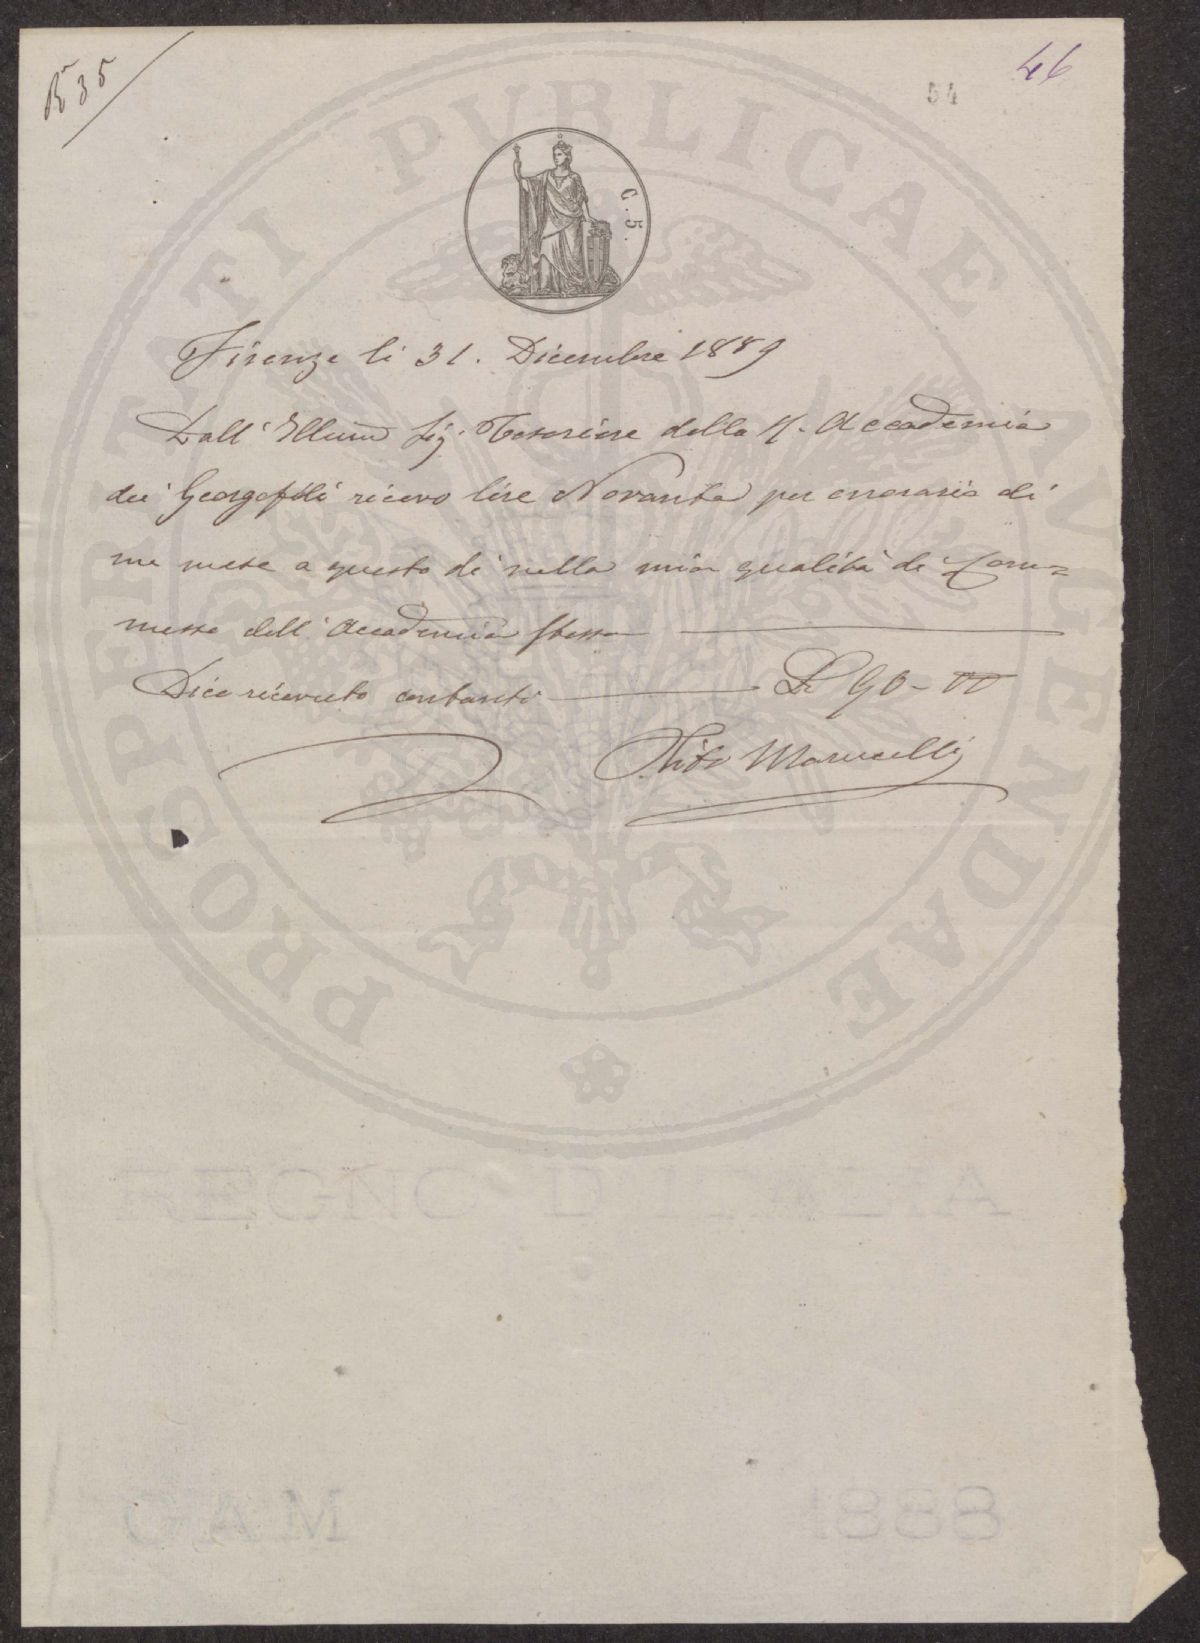 Bn 35
54
46
C. 5.
Firenze li 31. Dicembre 1889
Dall' Illmo Sig. Tesoriere della R. Accademia
dei Georgofili ricevo lire Novanta per onorario di
un mese a questo dì nella mia qualità di Com=
messo dell' Accademia stessa
Dico ricevuto contanti L 90 - 00
Marucelli
PROSPERITATI PVBLICAE AVGENDAE
REGNO D ITALIA
1888